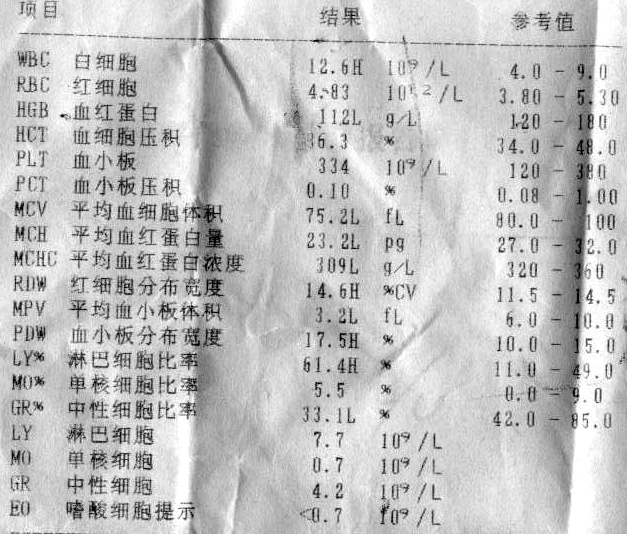 项目 结果 参考值
WBC 白细胞 12.6H 10⁹/L 4.0 - 9.0
RBC 红细胞 4.83 10¹²/L 3.80 - 5.30
HGB 血红蛋白 112L g/L 120 - 180
HCT 血细胞压积 36.3 % 34.0 - 48.0
PLT 血小板 334 10⁹/L 120 - 380
PCT 血小板压积 0.10 % 0.08 - 1.00
MCV 平均血细胞体积 75.2L fL 80.0 - 100
MCH 平均血红蛋白量 23.2L pg 27.0 - 32.0
MCHC 平均血红蛋白浓度 309L g/L 320 - 360
RDW 红细胞分布宽度 14.6H %CV 11.5 - 14.5
MPV 平均血小板体积 3.2L fL 6.0 - 10.0
PDW 血小板分布宽度 17.5H % 10.0 - 15.0
LY% 淋巴细胞比率 61.4H % 11.0 - 49.0
MO% 单核细胞比率 5.5 % 0.0 - 9.0
GR% 中性细胞比率 33.1L % 42.0 - 85.0
LY 淋巴细胞 7.7 10⁹/L
MO 单核细胞 0.7 10⁹/L
GR 中性细胞 4.2 10⁹/L
EO 嗜酸细胞提示 <0.7 10⁹/L